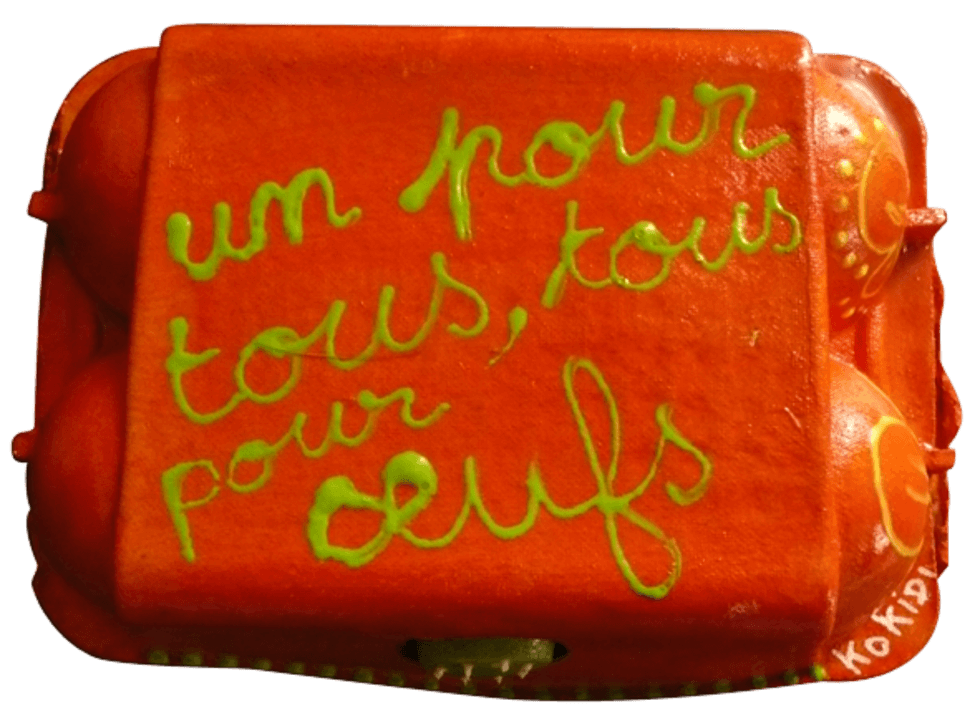 un pour
tous, tous
pour œufs
KoKiDi